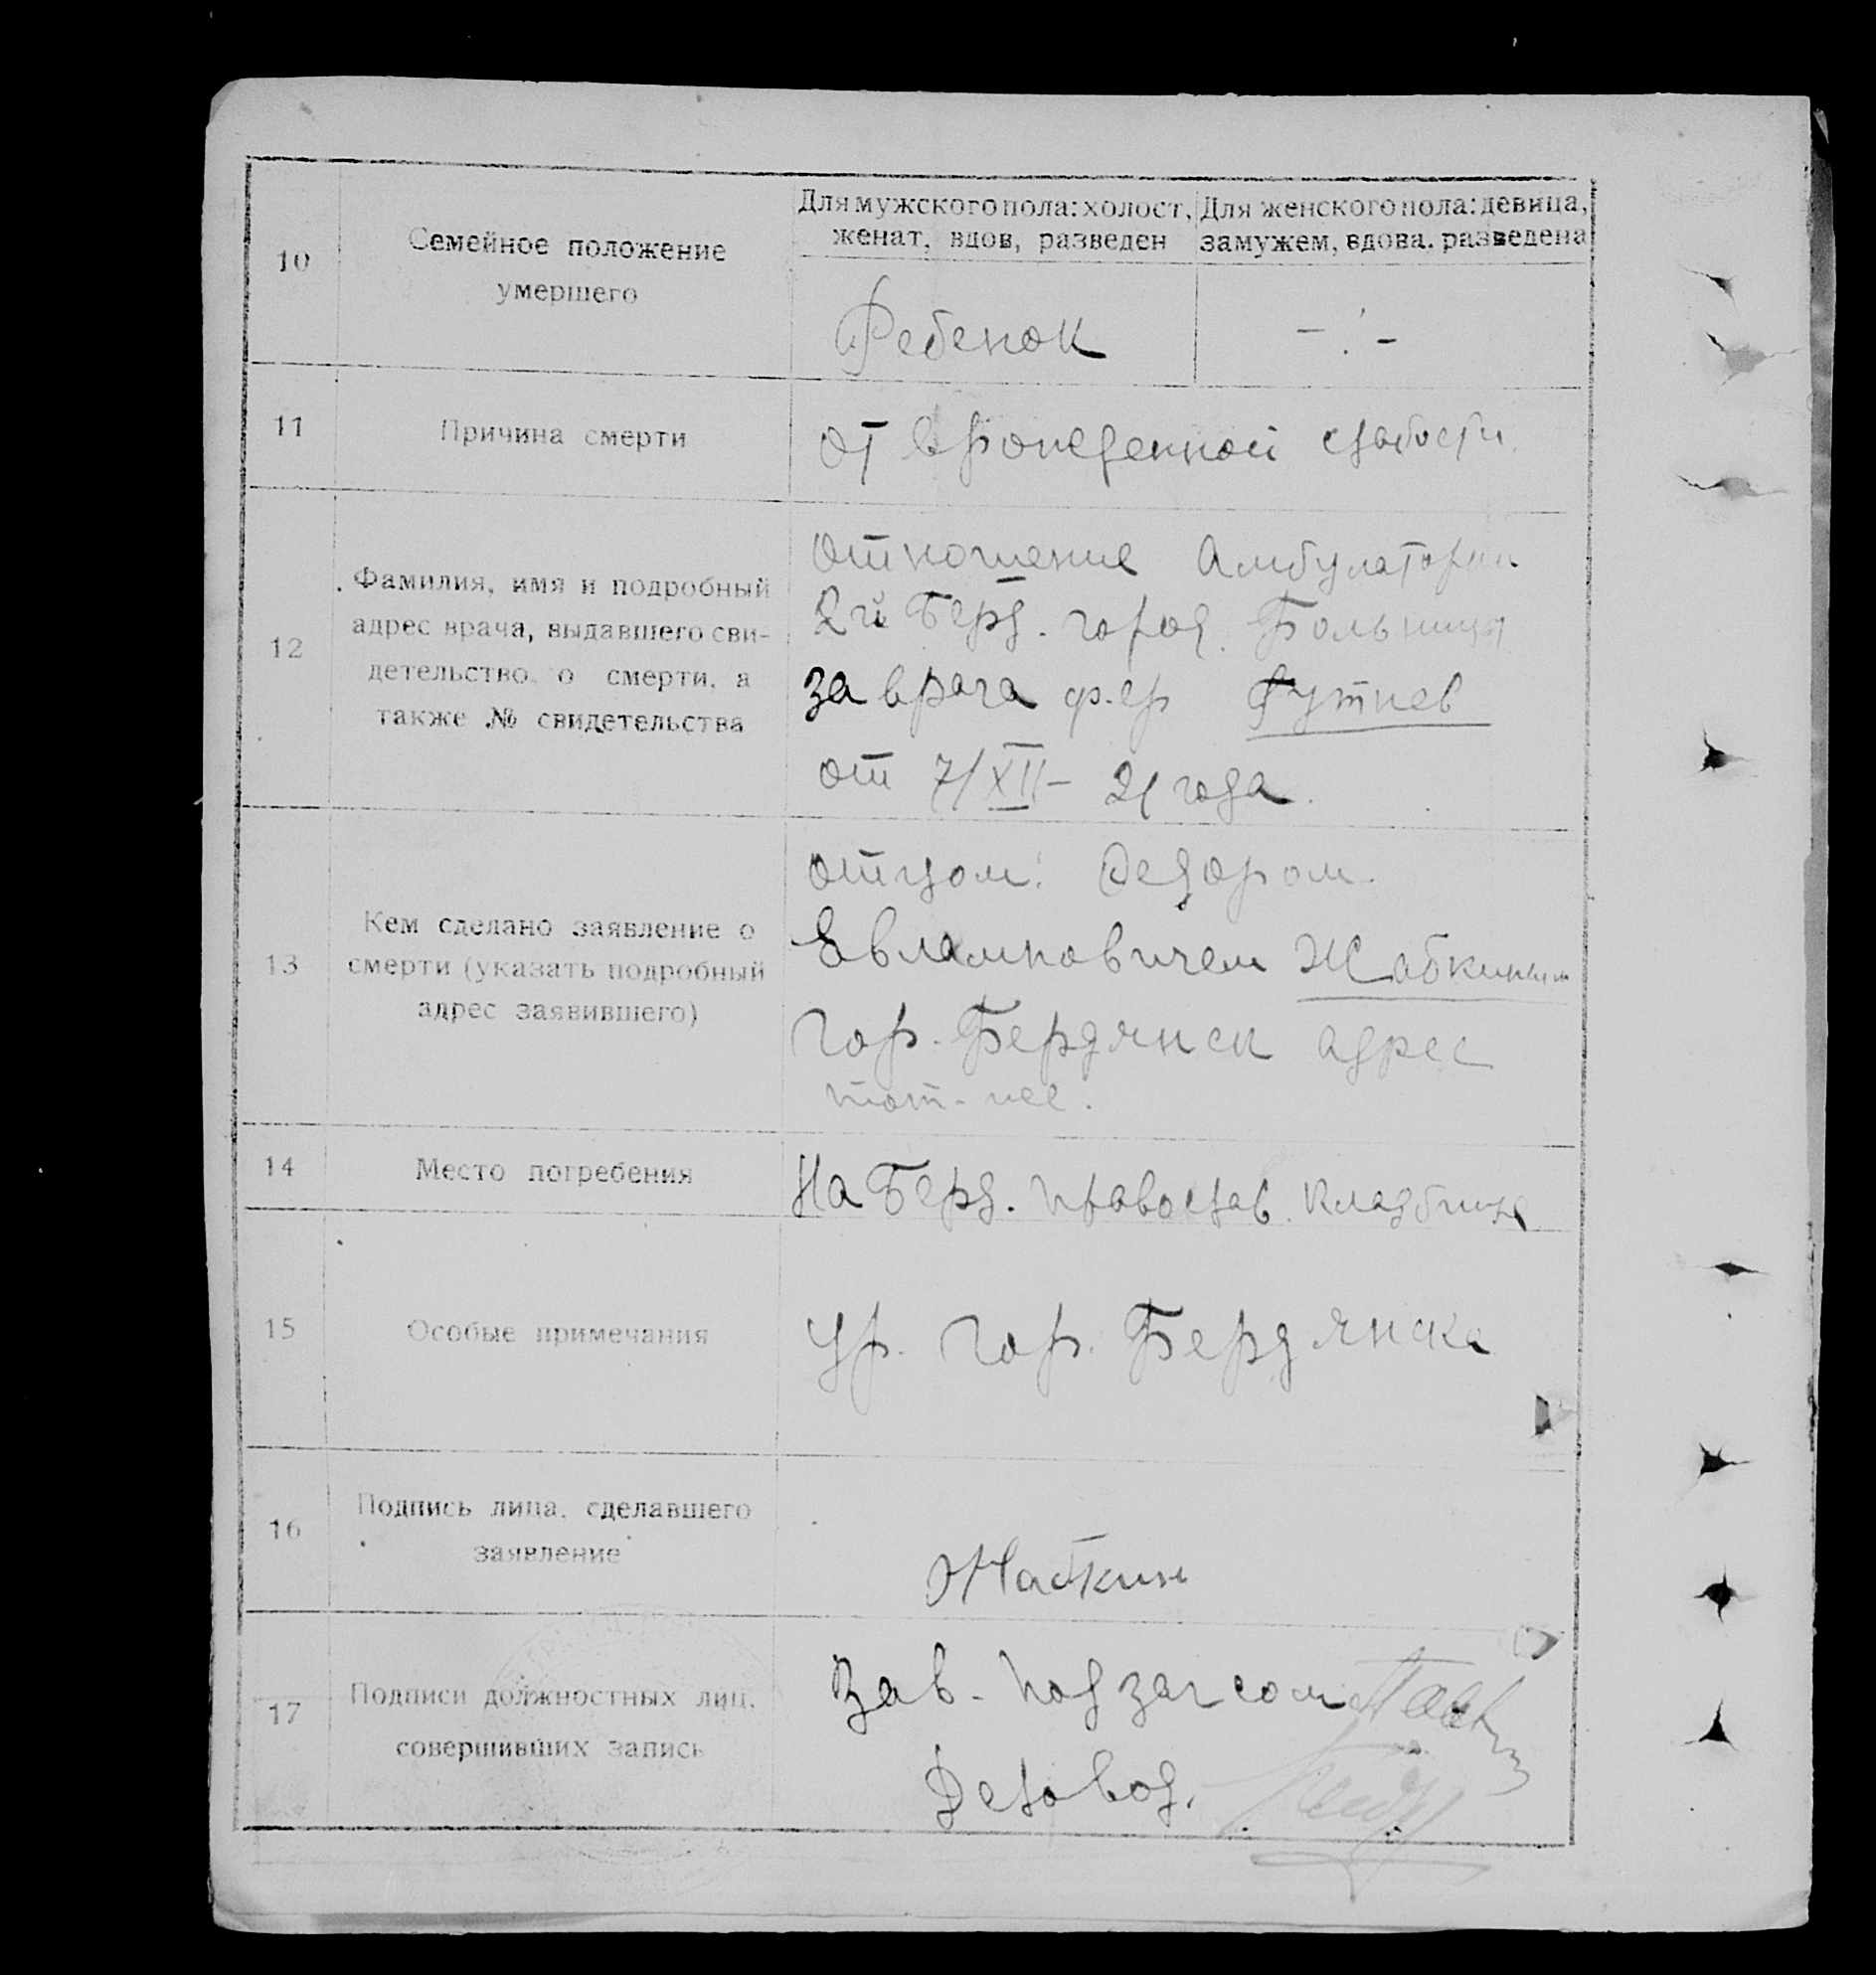 10
Семейное положение
умершего
Для мужского пола: холост,
женат, вдов, разведен
Для женского пола: девица,
замужем, вдова. разведена
Ребенок
- . -
11
Причина смерти
от врожденной слабости.
12
Фамилия, имя и подробный
адрес врача, выдавшего сви-
детельство о смерти, а
также № свидетельства
отношение Амбулатории
2й Берд. город. Больница
за врача ф-ер
от 7/XII- 21 года.
13
Кем сделано заявление о
смерти (указать подробный
адрес заявившего)
отцом: Федором
Евламповичем Жабкиным
гор. Бердянск адрес
тот-же.
14
Место погребения
На Берд. православ. кладбище
15
Особые примечания
ур. гор. Бердянска
16
Подпись лица, сделавшего
заявление
Жабкин
17
Подписи должностных лиц,
совершивших запись
Зав. подзагсом
Деловод.